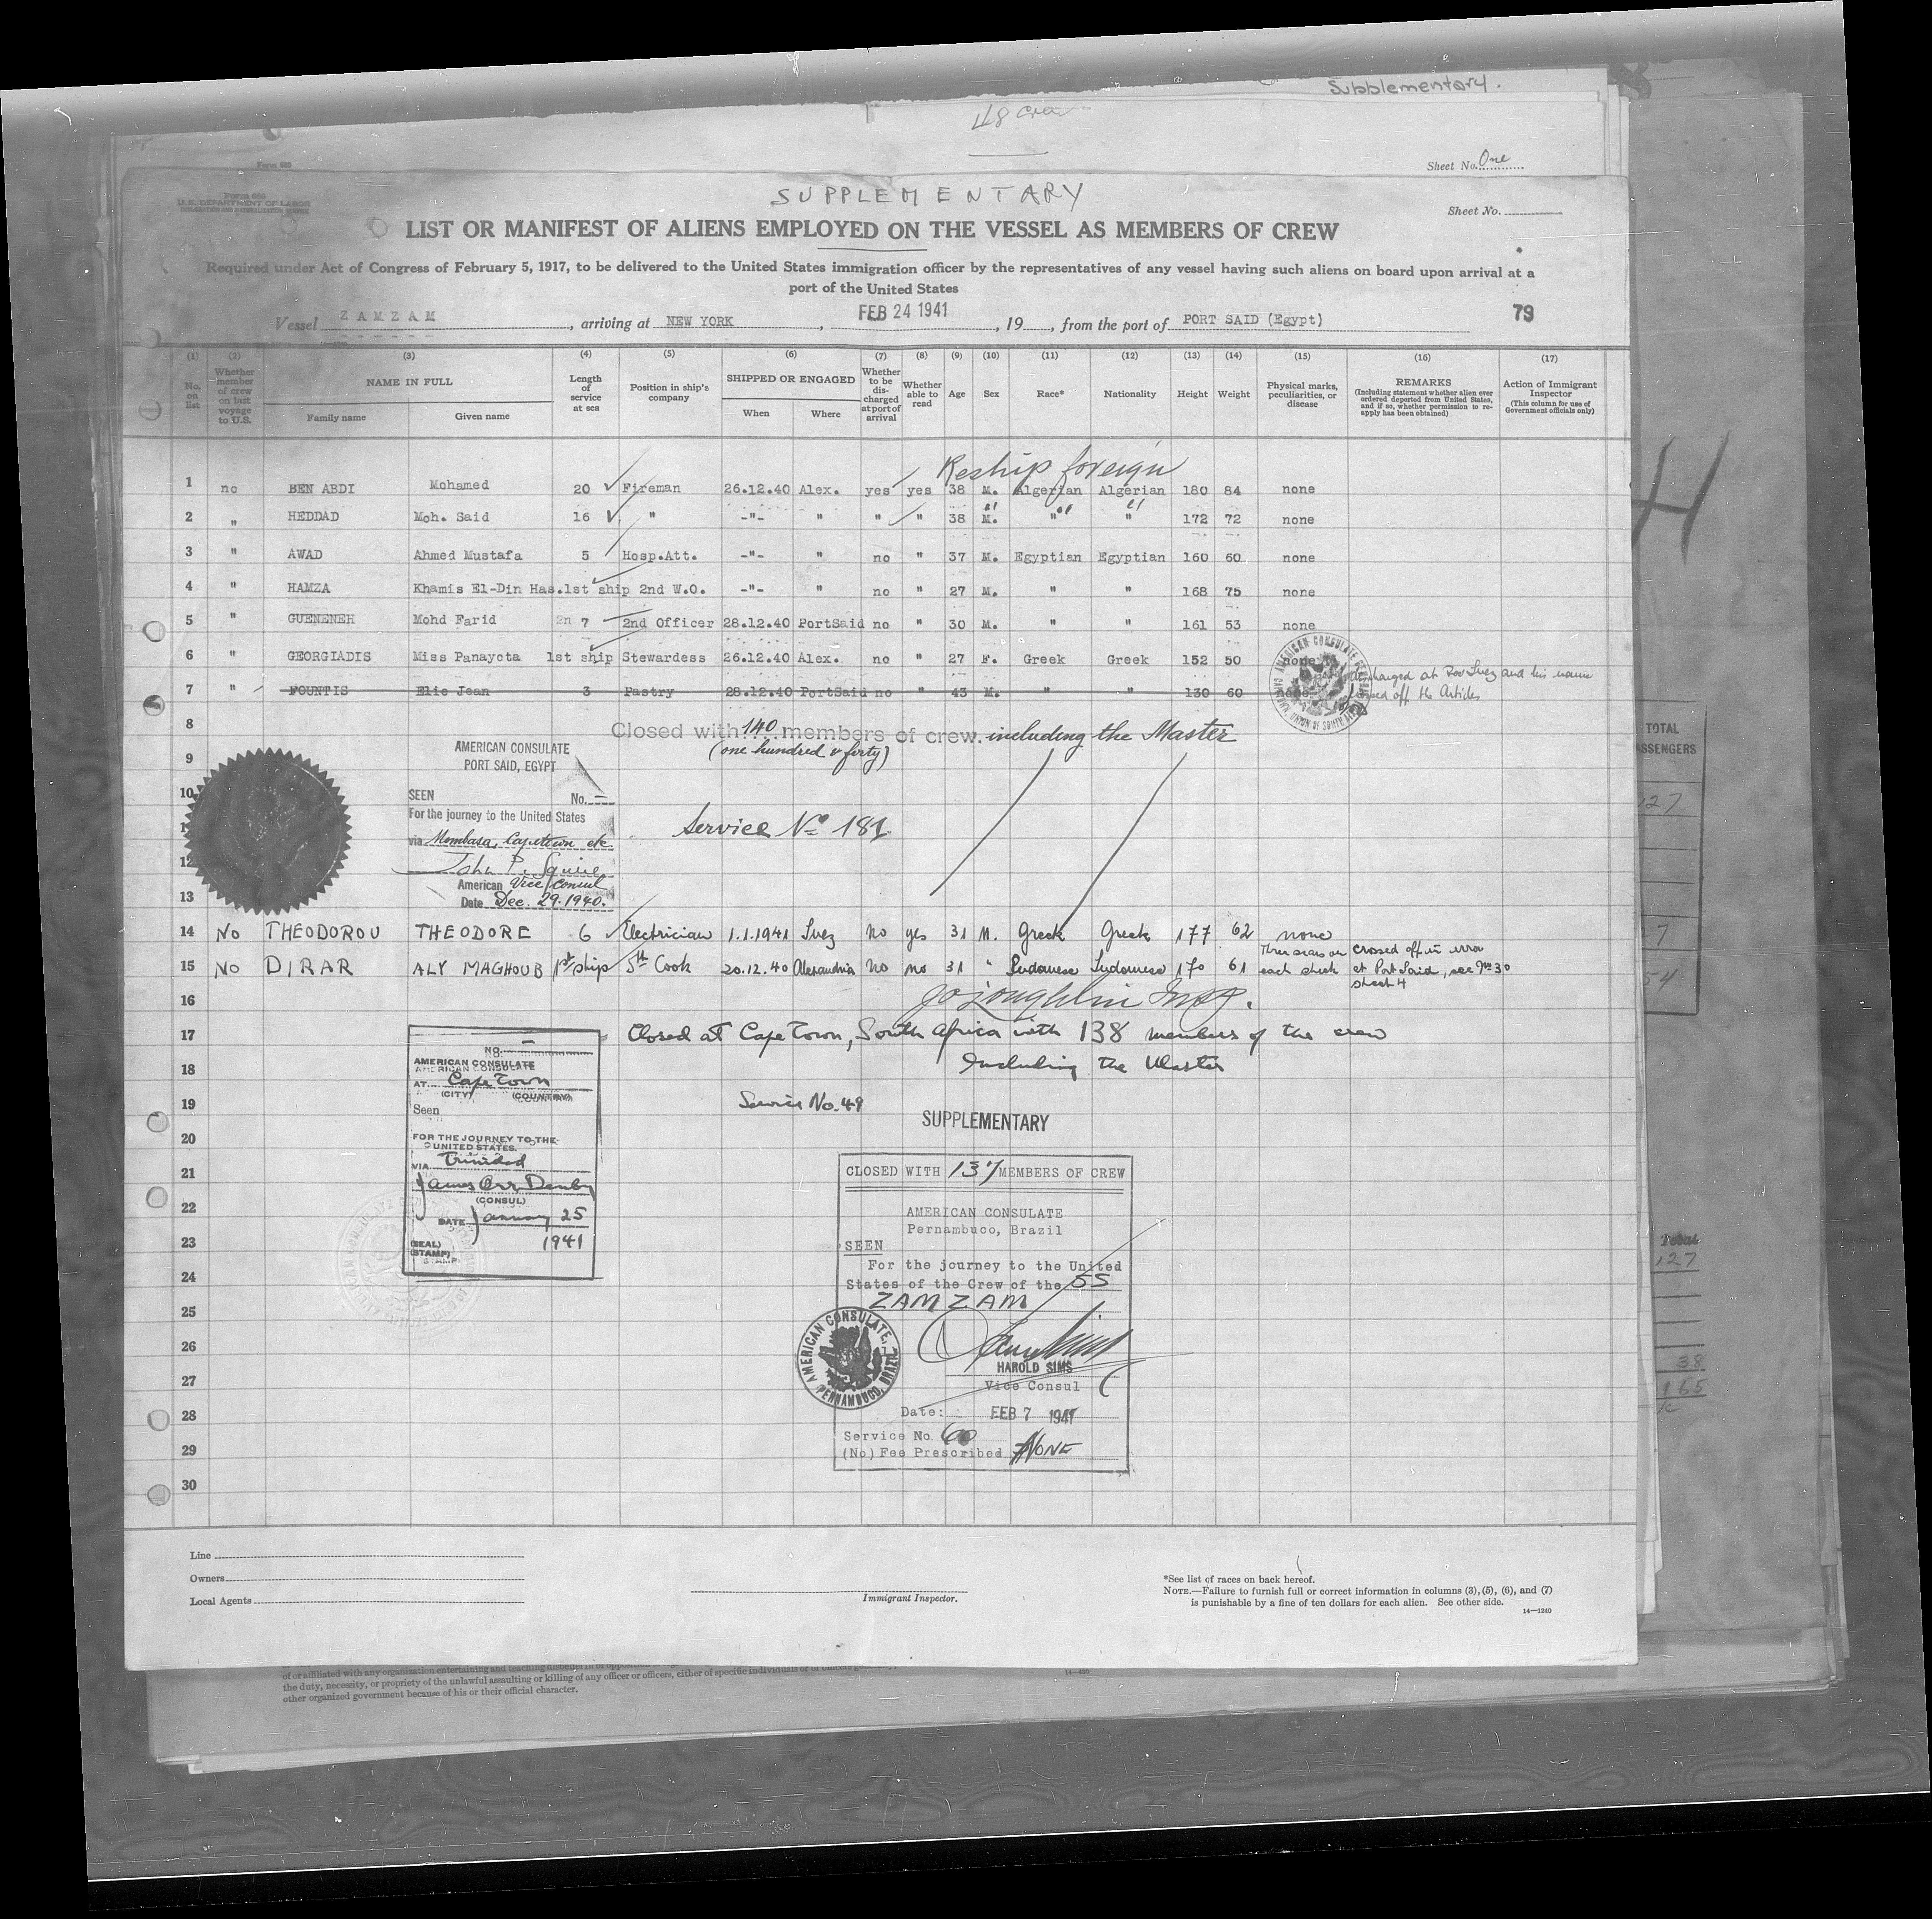 Supplementary.
48 Crew
Form 689
Sheet No. One
Form 689
U.S. DEPARTMENT OF LABOR
IMMIGRATION AND NATURALIZATION SERVICE
SUPPLEMENTARY
Sheet No.
LIST OR MANIFEST OF ALIENS EMPLOYED ON THE VESSEL AS MEMBERS OF CREW
Required under Act of Congress of February 5, 1917, to be delivered to the United States immigration officer by the representatives of any vessel having such aliens on board upon arrival at a
port of the United States
Vessel ZAMZAM, arriving at NEW YORK, FEB 24 1941, 19, from the port of PORT SAID (Egypt) 79
(1) (2) (3) (4) (5) (6) (7) (8) (9) (10) (11) (12) (13) (14) (15) (16) (17)
No. on list
Whether member of crew on last voyage to U.S.
NAME IN FULL
Family name Given name
Length of service at sea
Position in ship's company
SHIPPED OR ENGAGED
When Where
Whether to be discharged at port of arrival
Whether able to read
Age Sex Race* Nationality Height Weight
Physical marks, peculiarities, or disease
REMARKS
(Including statement whether alien ever ordered deported from United States, and if so, whether permission to reapply has been obtained)
Action of Immigrant Inspector
(This column for use of Government officials only)
Reship foreign
1 no BEN ABDI Mohamed 20 Fireman 26.12.40 Alex. yes yes 38 M. Algerian Algerian 180 84 none
2 " HEDDAD Moh. Said 16 " -"- " " " 38 M. " " 172 72 none
3 " AWAD Ahmed Mustafa 5 Hosp.Att. -"- " no " 37 M. Egyptian Egyptian 160 60 none
4 " HAMZA Khamis El-Din Has. 1st ship 2nd W.O. -"- " no " 27 M. " " 168 75 none
5 " GUENENEH Mohd Farid 2n 7 2nd Officer 28.12.40 PortSaid no " 30 M. " " 161 53 none
6 " GEORGIADIS Miss Panayota 1st ship Stewardess 26.12.40 Alex. no " 27 F. Greek Greek 152 50 none
7 " FOUNTIS Elie Jean 3 Pastry 28.12.40 PortSaid no " 43 M. " " 130 60 none
discharged at Port Suez and his name
signed off the Articles
8 Closed with 140 members of crew. including the Master
(one hundred & forty)
9
AMERICAN CONSULATE
PORT SAID, EGYPT
10
SEEN No. —
For the journey to the United States
via Mombasa, Capetown etc
Service No 181
12
John P. Squire
American Vice Consul
13
Date Dec. 29. 1940.
14 No THEODOROU THEODORE 6 Electrician 1.1.1941 Suez No yes 31 M. Greek Greek 177 62 none
15 No DIRAR ALY MAGHOUB 1st ship 5th Cook 20.12.40 Alexandria No no 31 " Sudanese Sudanese 170 61 Three scars on each cheek crossed off in error at Port Said, see No 30 sheet 4
16
17 Closed at Cape Town, South Africa with 138 members of the crew
18 Including the Master
NO. —
AMERICAN CONSULATE
AT Cape Town
(CITY) (COUNTRY)
Seen
FOR THE JOURNEY TO THE
UNITED STATES.
VIA Trinidad
James Orr Denby
(CONSUL)
DATE January 25
1941
(SEAL)
(STAMP)
19 Service No. 49
SUPPLEMENTARY
20
21
CLOSED WITH 137 MEMBERS OF CREW
22
AMERICAN CONSULATE
Pernambuco, Brazil
23
SEEN
24
For the journey to the United
States of the Crew of the SS
25
ZAMZAM
26
AMERICAN CONSULATE, PERNAMBUCO, BRAZIL
HAROLD SIMS
27
Vice Consul
28
Date: FEB 7 1941
29
Service No. 60
(No) Fee Prescribed NONE
30
Line
Owners
Local Agents
Immigrant Inspector.
*See list of races on back hereof.
NOTE.—Failure to furnish full or correct information in columns (3), (5), (6), and (7)
is punishable by a fine of ten dollars for each alien. See other side.
14—1240
the duty, necessity, or propriety of the unlawful assaulting or killing of any officer or officers, either of specific individuals or of officers
other organized government because of his or their official character.
TOTAL
PASSENGERS
127
Total
127
38
165